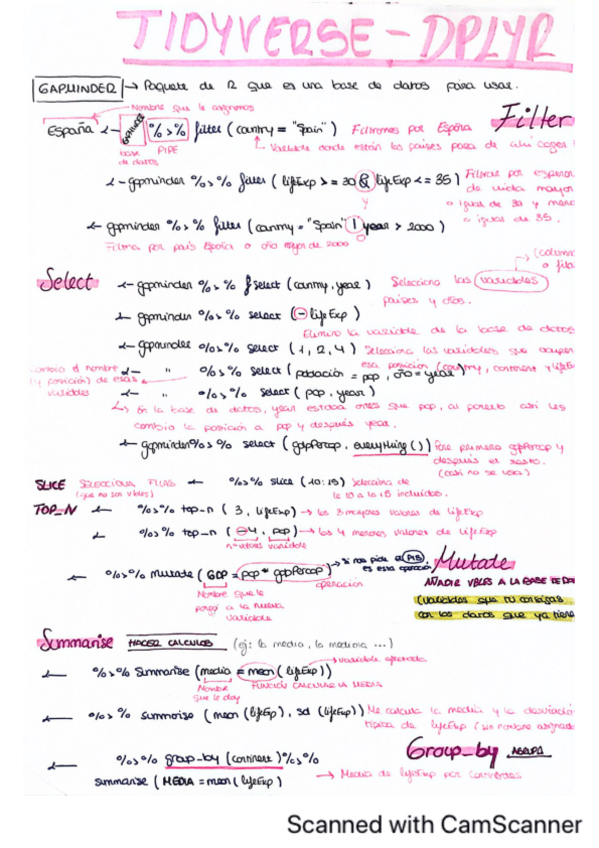 TIDYVERSE - DPLYR
GAPMINDER → Paquete de R que es una base de datos para usar.
Nombre que le asignemos
Filter
España <- gapminder %>% filter (country = "Spain") Filtramos por España
base de datos
PIPE
Variable donde están los países para de ahí coger
<- gapminder %>% filter (lifeExp >= 30 & lifeExp <= 35)
y
Filtrar por esperan
de vida mayor
o igual de 30 y meno
o igual de 35.
<- gapminder %>% filter (country = "Spain" | year > 2000)
Filtra por país España o año mayor de 2000
o
(column
o fila
Select
<- gapminder %>% select (country, year) Selecciona las variables
países y años.
<- gapminder %>% select (-lifeExp)
Elimino la variable de la base de datos
<- gapminder %>% select (1, 2, 4) Selecciona las variables que ocupen
esa posición (country, continent y lifeEx
cambio el nombre
(y posición) de esas
variables
<- " %>% select (población = pop, año = year)
<- " %>% select (pop, year)
↳ En la base de datos, year estaba antes que pop, al ponerlo así les
cambio la posición a pop y después year.
<- gapminder %>% select (gdpPercap, everything ()) Pone primero gdpPercap y
después el resto.
(casi no se usa)
SLICE SELECCIONA FILAS <- %>% slice (10:15) Selecciona de
(que no son vbles) la 10 a la 15 incluidos.
TOP_N <- %>% top-n (3, lifeExp) → los 3 mayores valores de lifeExp
<- %>% top-n (-4, pop) → los 4 menores valores de lifeExp
nº valores variable
Mutate
<- %>% mutate (GDP = pop * gdpPercap) → si nos pide el PIB
es esta operación
operación
Nombre que le
pongo a la nueva
variable
AÑADIR VBLES A LA BASE DE DA
(variables que tu consigas
con los datos que ya tiene
Summarise HACER CALCULOS (ej: la media, la mediana ...)
<- %>% Summarise (media = mean (lifeExp)) → variable afectada
Nombre
que le doy
FUNCIÓN CALCULAR LA MEDIA
<- %>% summarise (mean (lifeExp), sd (lifeExp)) Me calcula la media y la desviació
típica de lifeExp (sin nombre asignado
Group_by AGRUPA
<- %>% group-by (continent) %>%
summarise (MEDIA = mean (lifeExp) → Media de lifeExp por continentes
Scanned with CamScanner